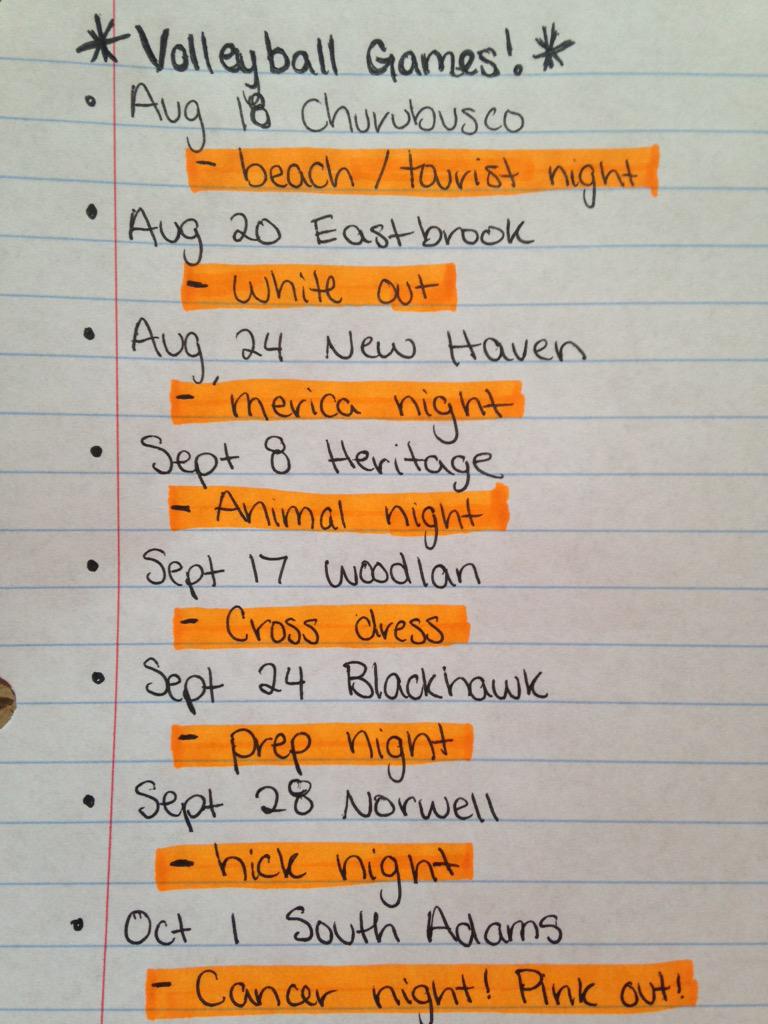 *Volleyball Games!*
• Aug 18 Churubusco
- beach / tourist night
• Aug 20 Eastbrook
- White out
• Aug 24 New Haven
- 'merica night
• Sept 8 Heritage
- Animal night
• Sept 17 Woodlan
- Cross dress
• Sept 24 Blackhawk
- prep night
• Sept 28 Norwell
- hick night
• Oct 1 South Adams
- Cancer night! Pink out!